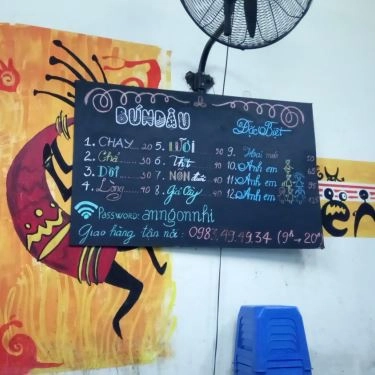 BÚNĐẬU
Đặc Biệt
1. CHAY 20 5. LƯỠI 9. Hoai
2. Chả 30 6. Thịt 10. Anh em
3. DỒI 30 7. NÓN 11. Anh em
4. Lòng 40 8. Giả Cầy 12. Anh em
PASSWORD: amngonnhi
Giao hàng tận nơi : 0983.49.49.34 (9h → 20h